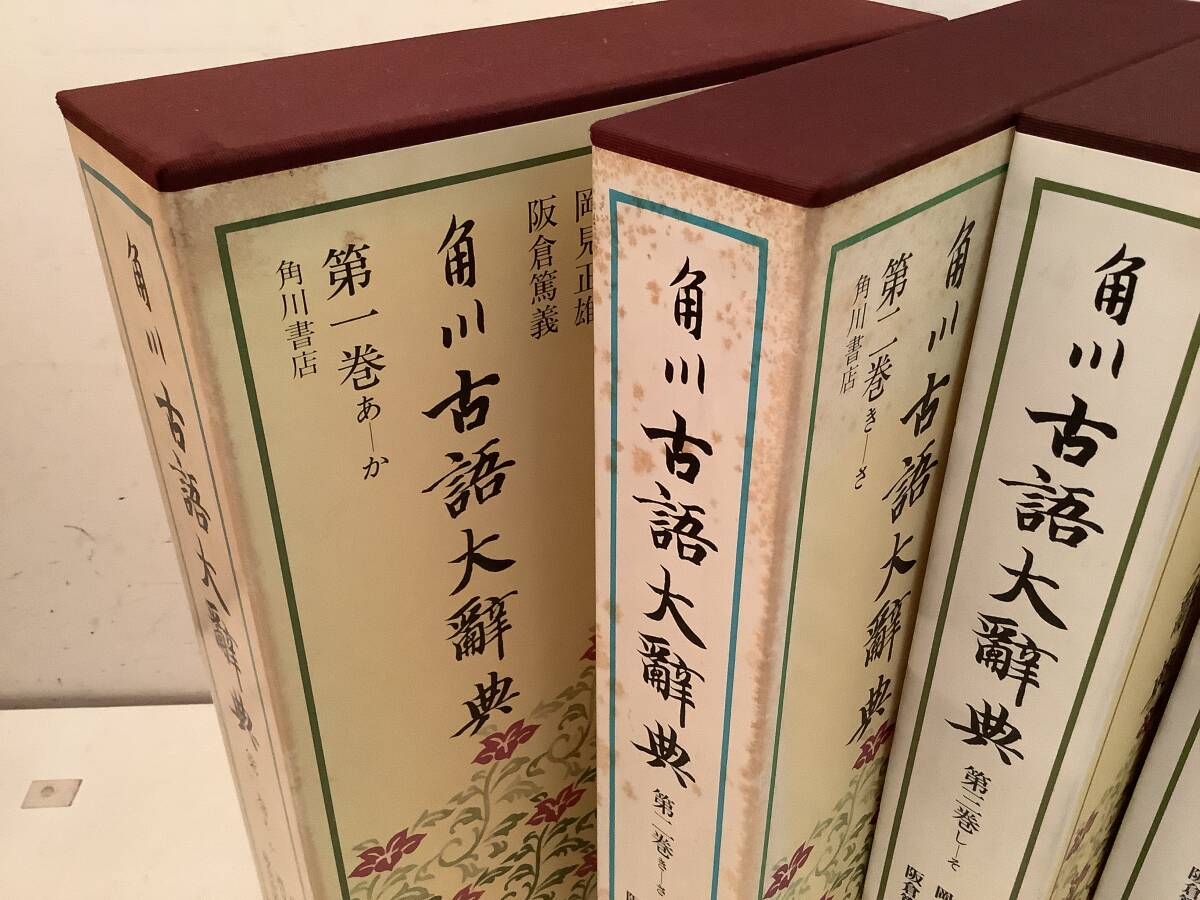 角川古語大辭典
岡見正雄
阪倉篤義
角川古語大辭典
第一巻 あ―か
角川書店
角川古語大辭典 第二巻 き―さ
角川古語大辭典
第二巻 き―さ
角川書店
角川古語大辭典 第三巻 し―そ
岡
阪倉